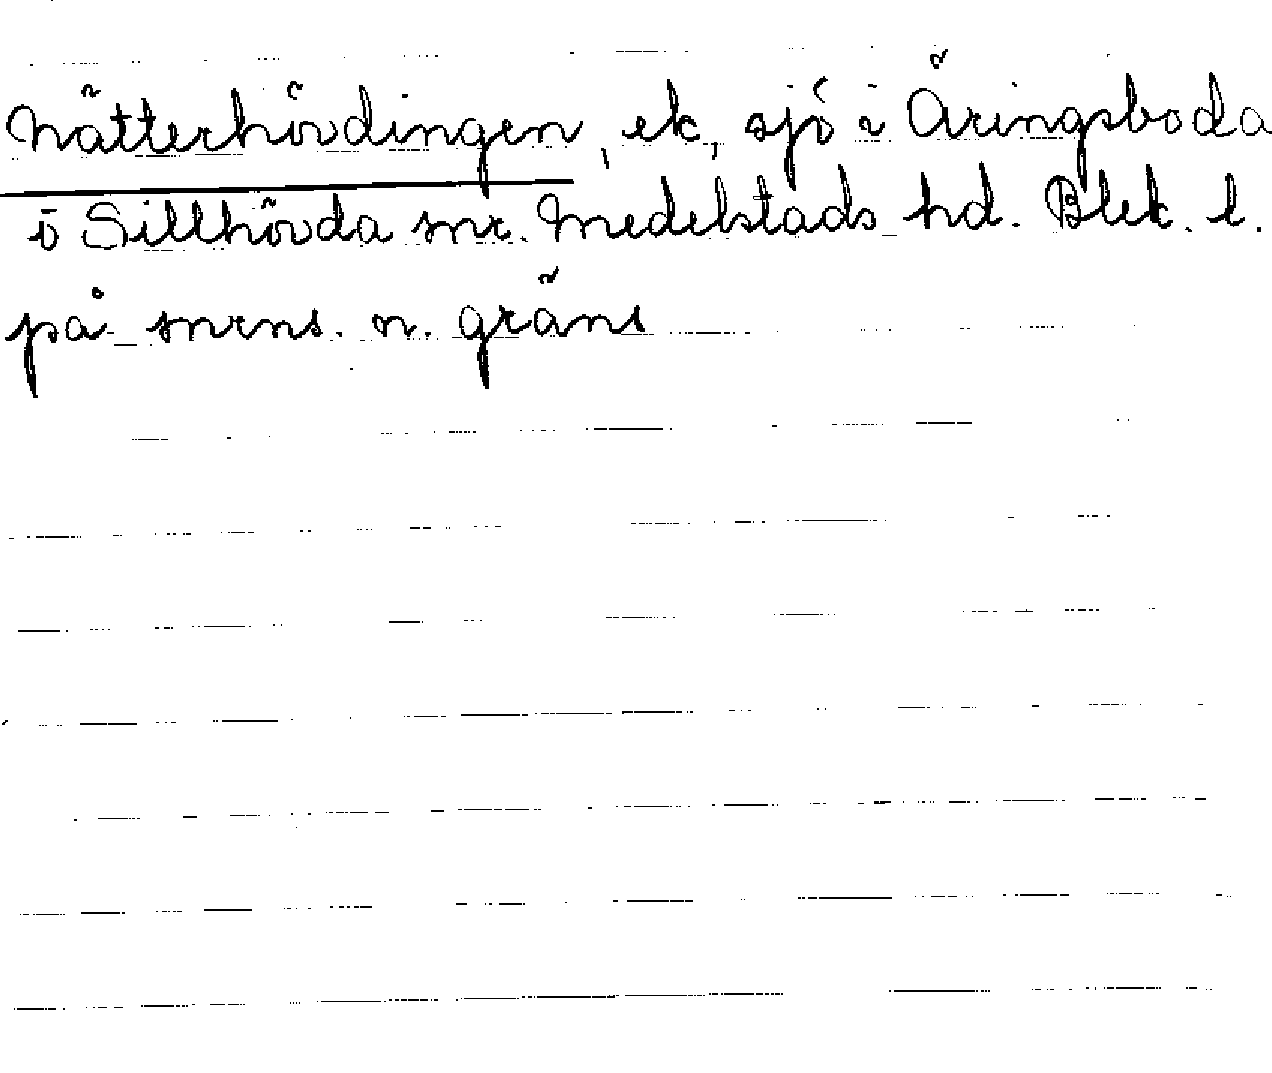 Nätterhövdingen, ek, sjö i Äringsboda
i Sillhövda snr. Medelstads hd. Blek. l.
på snrns. n. gräns